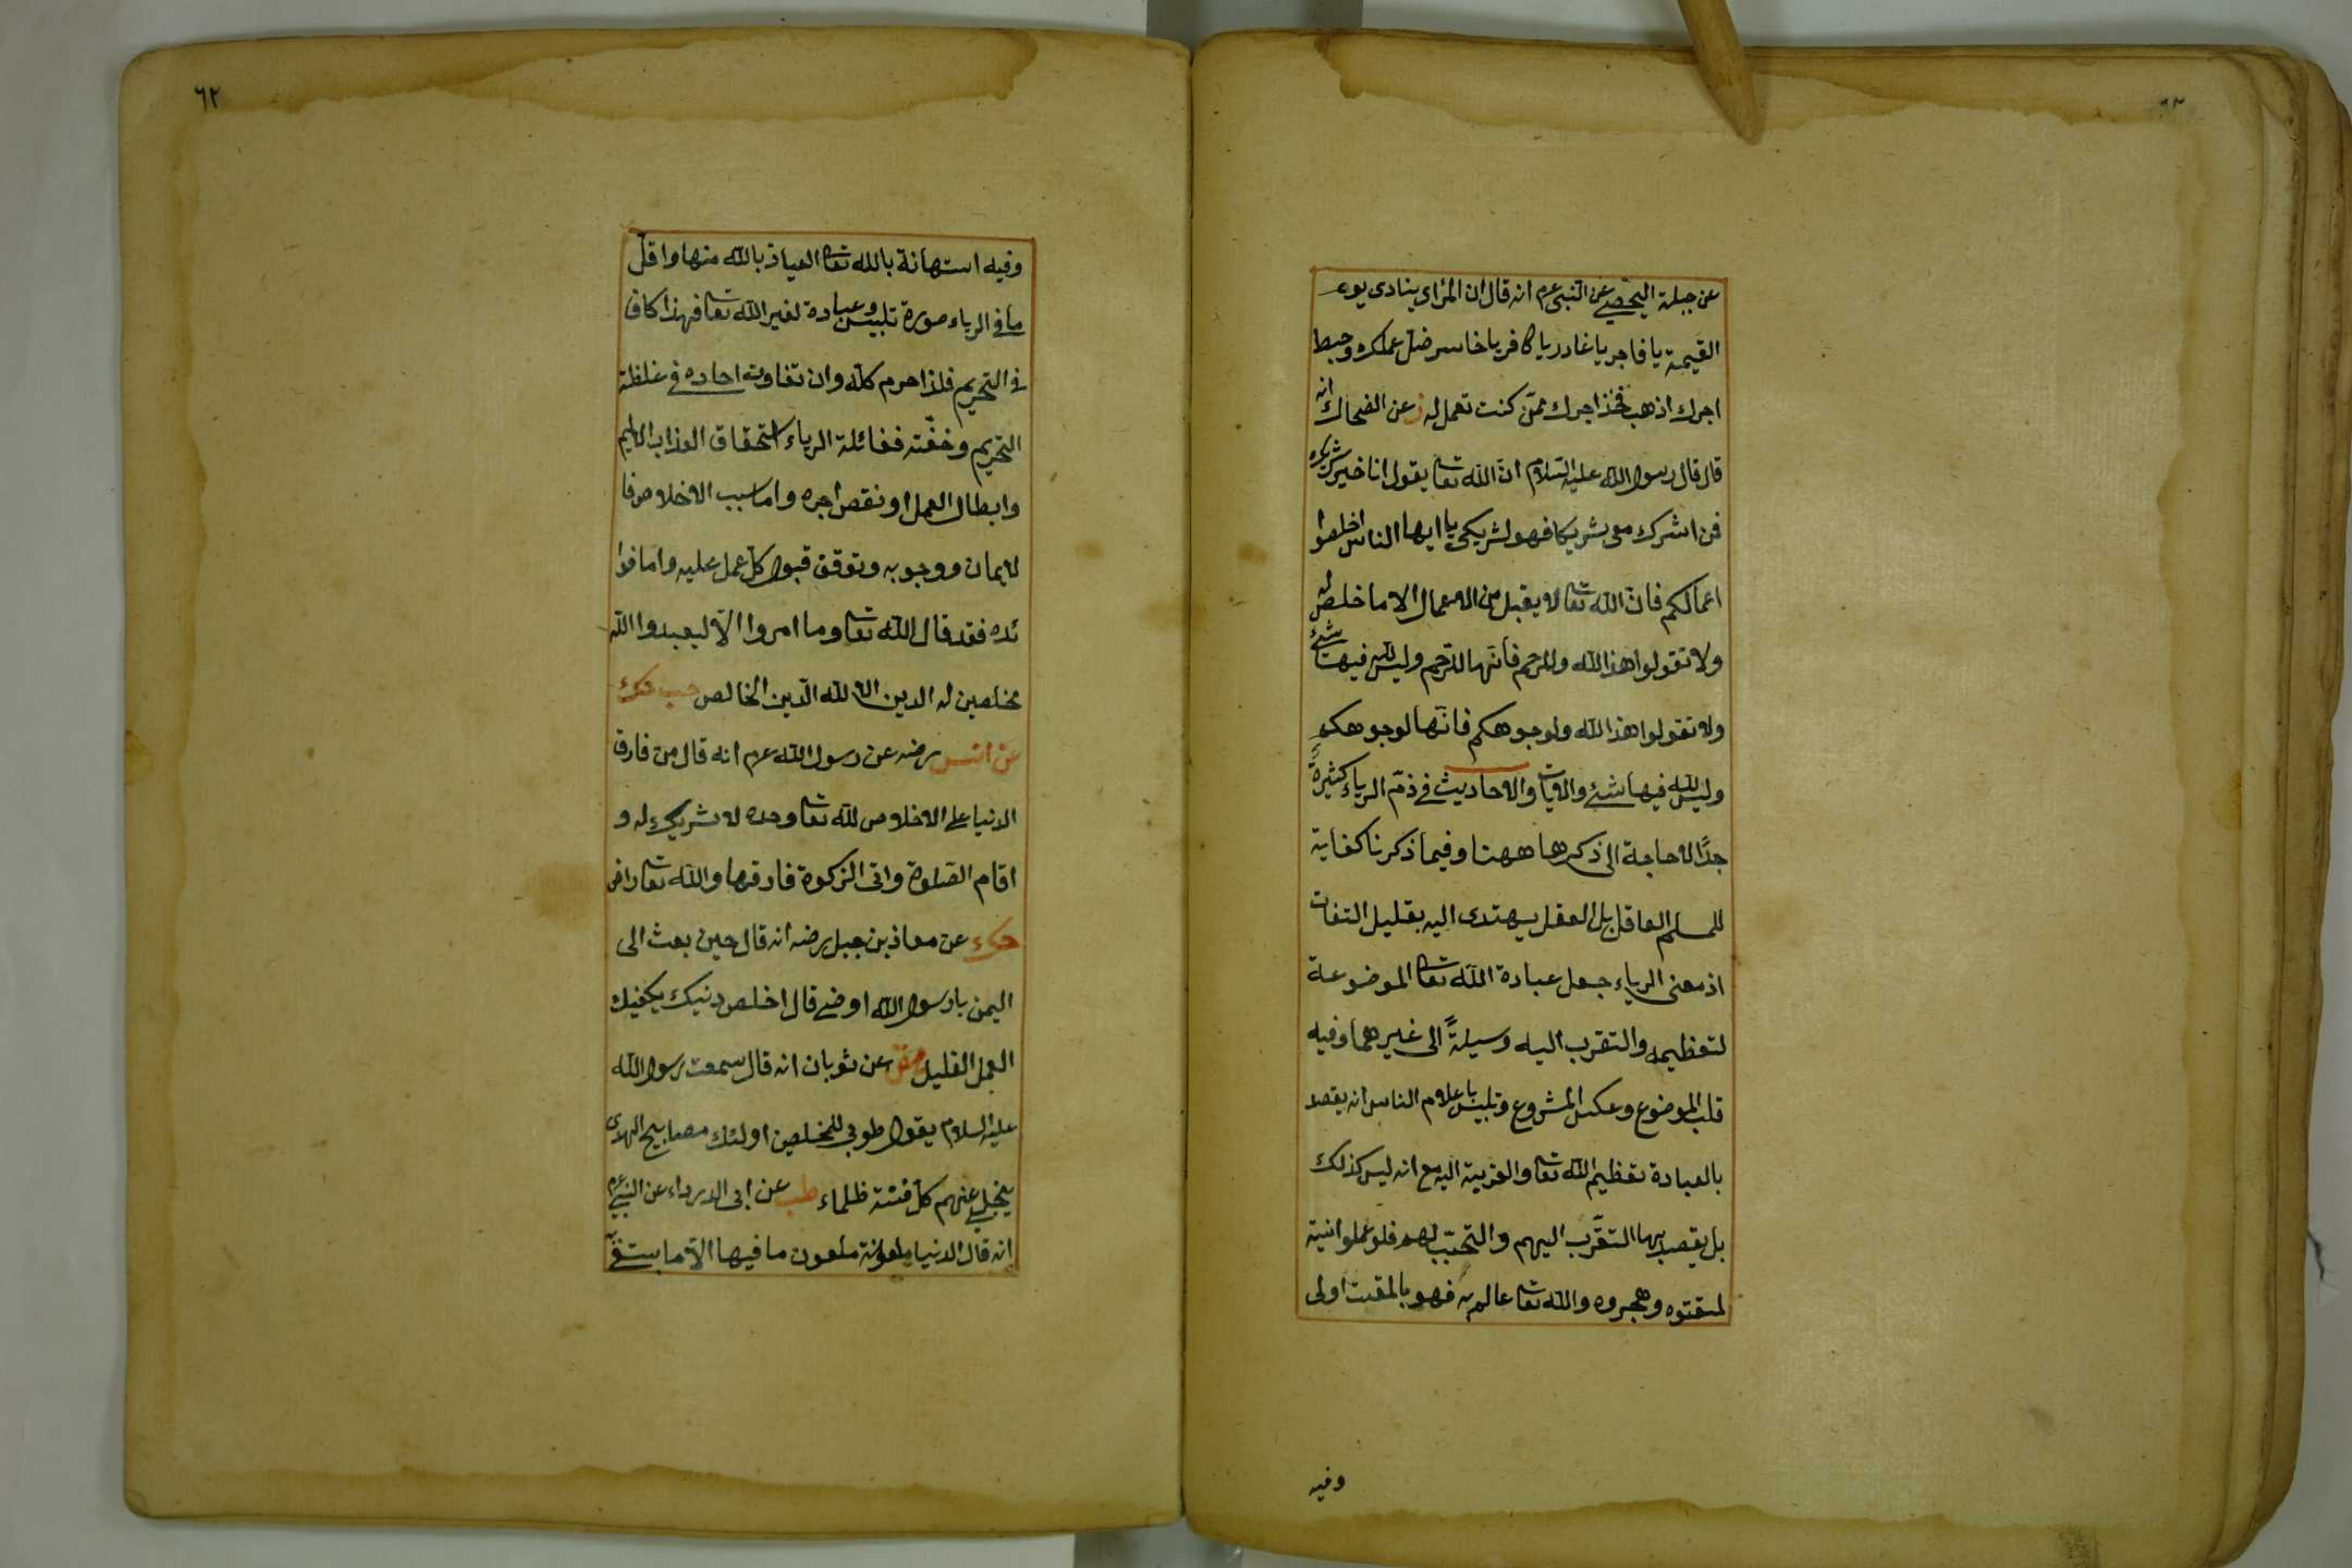 عن جبلة اليحصبي عن النبي عم انه قال ان المرائ ينادى يوم
القيمة يا فاجر يا غادر يا كافر يا خاسر ضل عملك وحبط
اجرك اذهب فخذ اجرك ممن كنت تعمل له ز عن الضحاك انه
قال قال رسول الله عليه السلام ان الله تعا يقول انا خير شريك
فمن اشرك معى شريكا فهو لشريكى يا ايها الناس اخلصوا
اعمالكم فان الله تعا لا يقبل من الاعمال الا ما خلص له
ولا تقولوا هذا لله وللرحم فانها للرحم وليس لله فيها شئ
ولا تقولوا هذا لله ولوجوهكم فانها لوجوهكم
وليس لله فيها شئ والآيات والاحاديث في ذم الرياء كثيرة
جدًا لا حاجة الى ذكرها ههنا وفيما ذكرنا كفاية
للمسلم العاقل بل العقل يهتدى اليه بقليل التفات
اذ معنى الرياء جعل عبادة الله تعا الموضوعة
لتعظيمه والتقرب اليه وسيلةً الى غيرهما وفيه
قلب الموضوع وعكس المشروع وتلبيس باعلام الناس انه يقصد
بالعبادة تعظيم الله تعا والقربة اليه مع انه ليس كذلك
بل يقصد بها التقرب اليهم والتحبب لهم فلو علموا نيته
لمقتوه وهجروه والله تعا عالم به فهو بالمقت اولى
وفيه
٦٢
وفيه استهانة بالله تعا العياذ بالله منها واقل
ما في الرياء صورة تلبيس وعبادة لغير الله تعا فهذا كاف
في التحريم فلذا حرم كله وان تفاوت احاده في غلظة
التحريم وخفته فغائلة الرياء استحقاق العذاب الاليم
وابطال العمل او نقص اجره واما سبب الاخلاص فا
لايمان ووجوبه وتوقف قبول كل عمل عليه واما فوا
ئده فقد قال الله تعا وما امروا الا ليعبدوا الله
مخلصين له الدين الا لله الدين الخالص حب حك
عن انس رضه عن رسول الله عم انه قال من فارق
الدنيا على الاخلاص لله تعا وحده لا شريك له و
اقام الصلوة واتى الزكوة فارقها والله تعا راض
حك عن معاذ بن جبل رضه انه قال حين بعث الى
اليمن يا رسول الله اوصنى قال اخلص دينك يكفيك
العمل القليل هق عن ثوبان انه قال سمعت رسول الله
عليه السلام يقول طوبى للمخلصين اولئك مصابيح الهدى
ينجلى عنهم كل فتنة ظلماء طب عن ابى الدرداء عن النبي عم
انه قال الدنيا ملعونة ملعون ما فيها الا ما ابتغى به